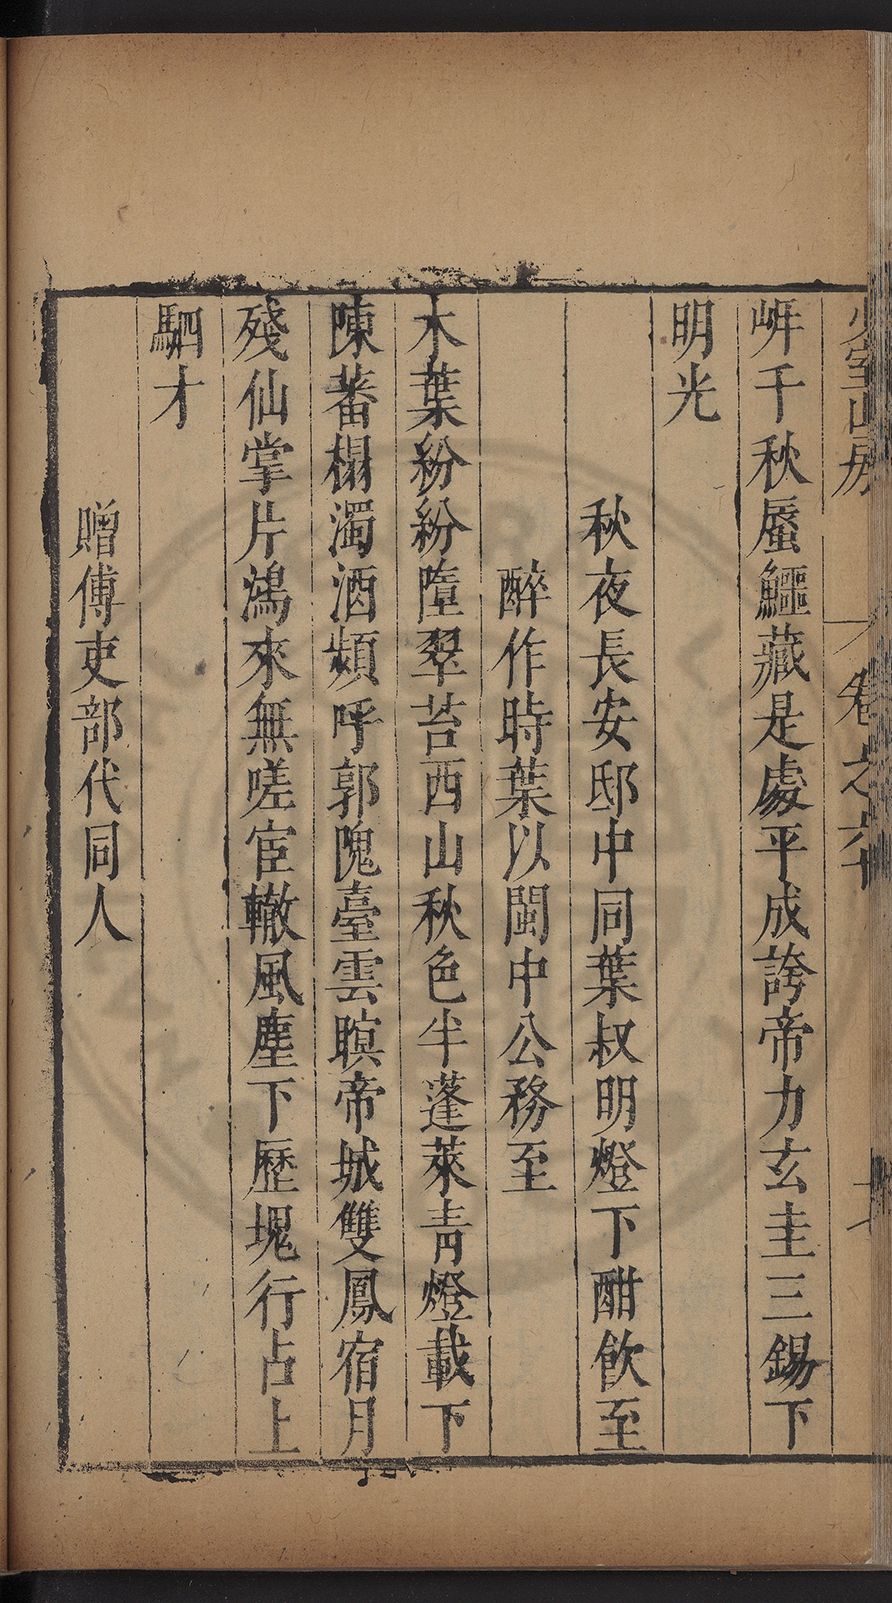 少室山房 卷之六十
𡶜千秋蜃鱷藏是處平成誇帝力玄圭三錫下
明光
秋夜長安邸中同葉叔明燈下酣飲至
醉作時葉以閩中公務至
木葉紛紛墮翠苔西山秋色半蓬萊青燈載下
陳蕃榻濁酒頻呼郭隗臺雲暝帝城雙鳳宿月
殘仙掌片鴻來無嗟宦轍風塵下歷塊行占上
駟才
贈傅吏部代同人